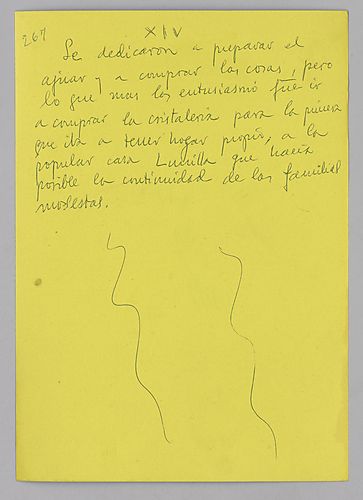 267
XIV
Se dedicaron a preparar el
ajuar y a comprar las cosas, pero
lo que mas les entusiasmó fue ir
a comprar la cristaleria para la primera
que iba a tener hogar propio, a la
popular casa Lumilla que hacía
posible la continuidad de las familias
modestas.